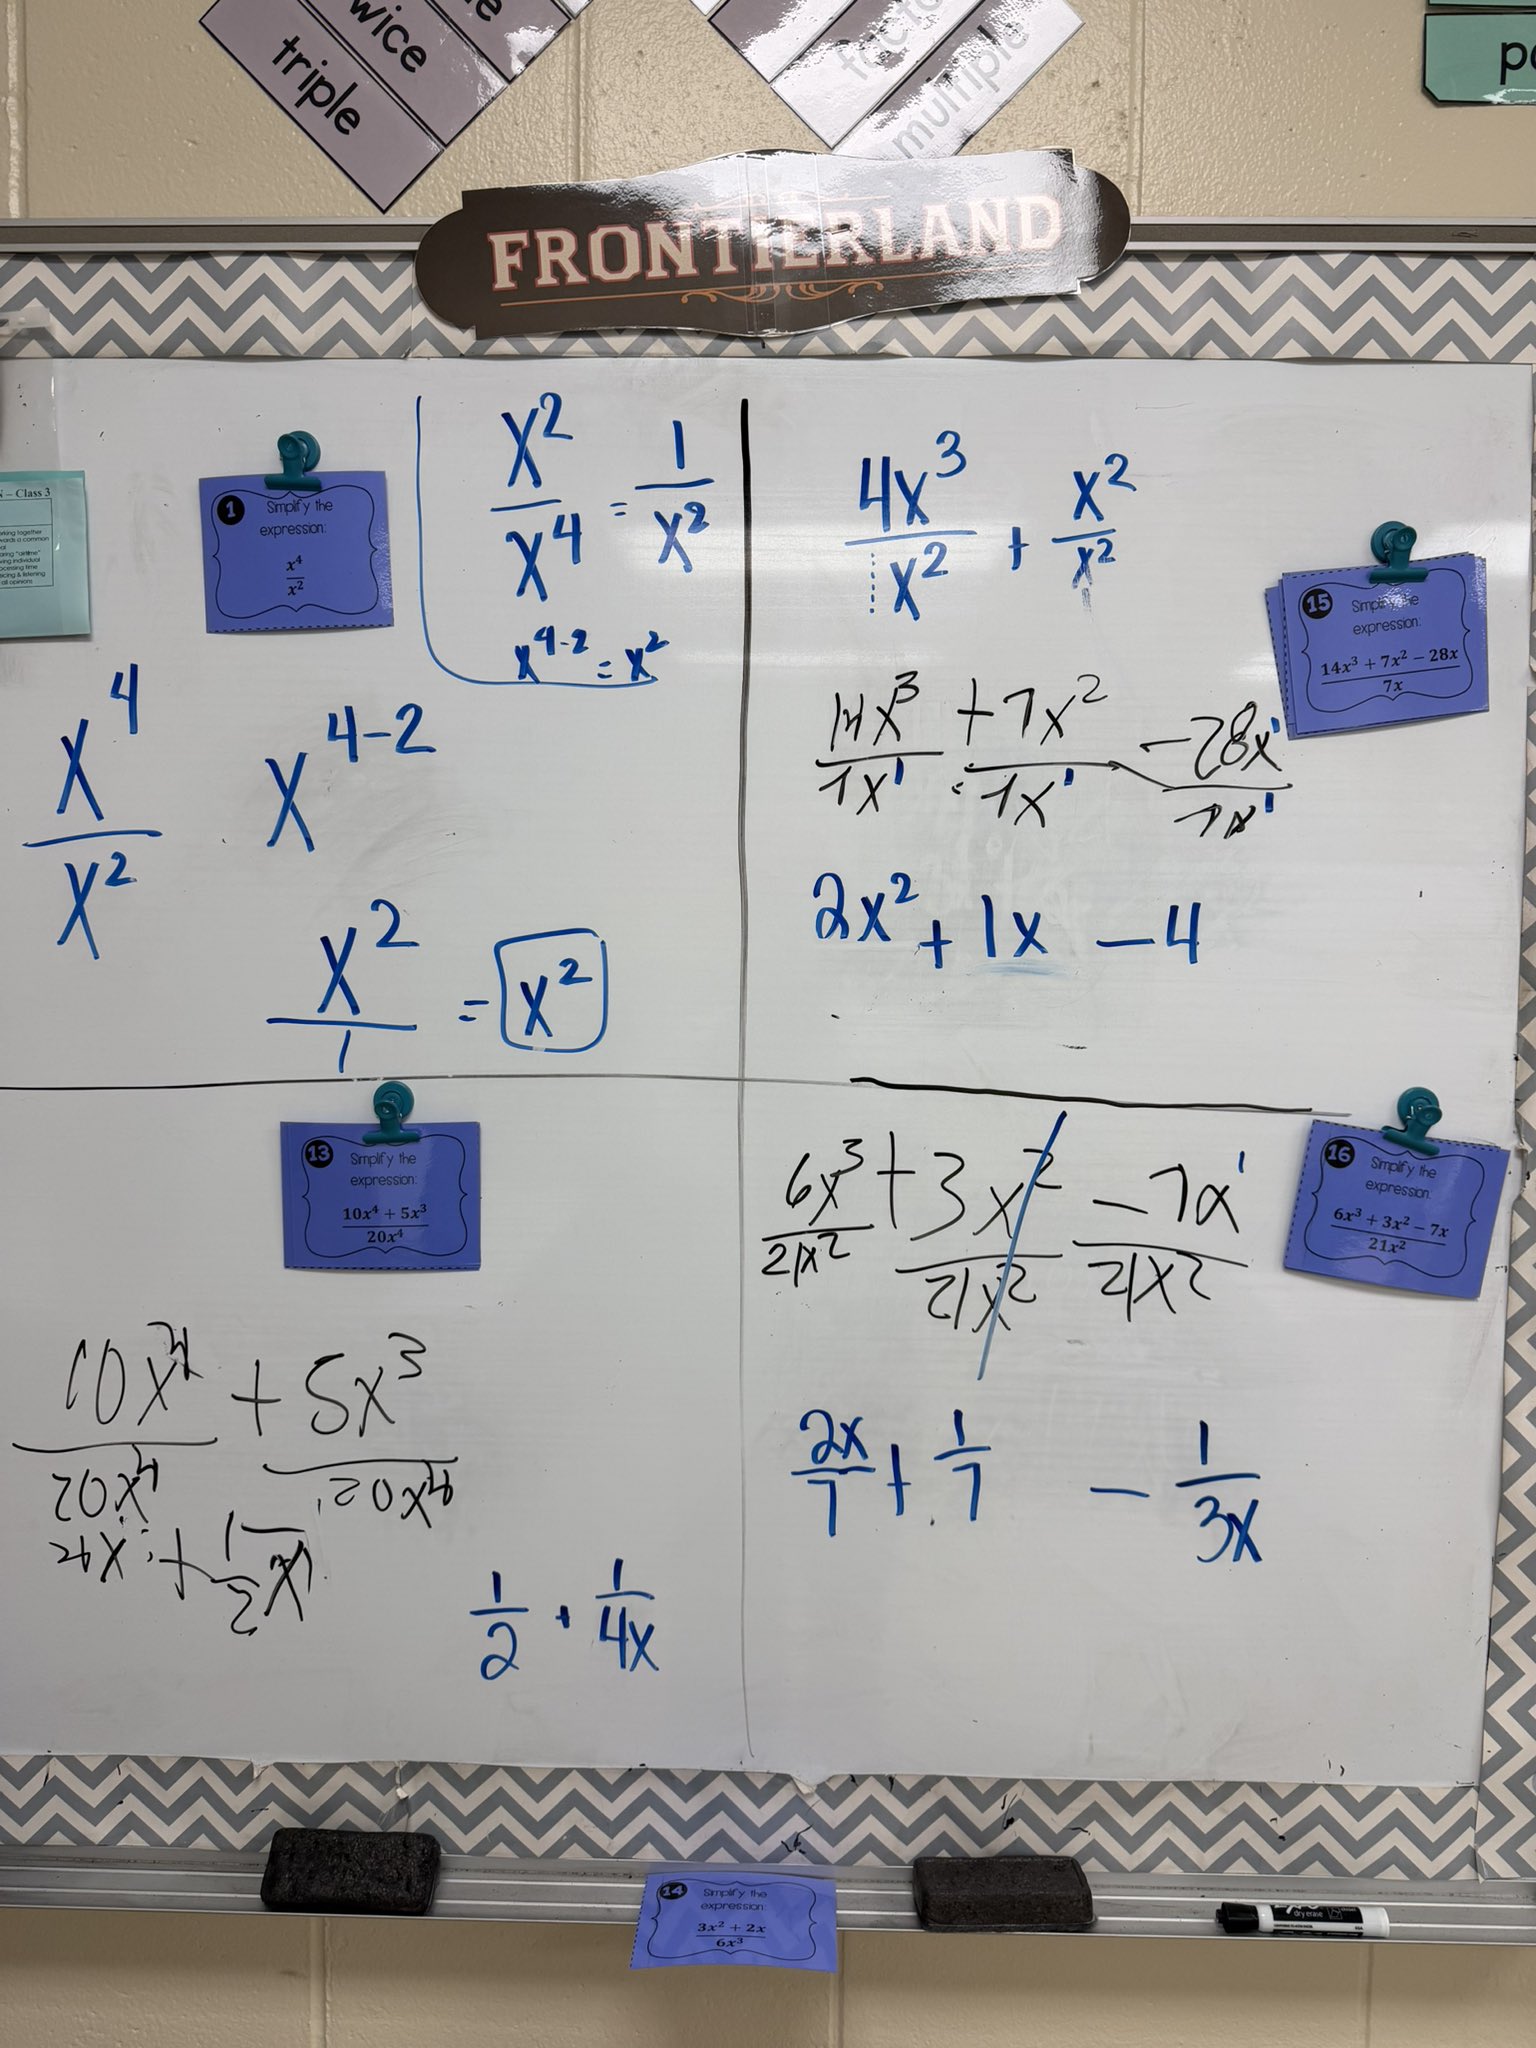 wice
triple
facto
multiple
FRONTIERLAND
N – Class 3
1 Simplify the
expression:
x⁴
x²
x²
x⁴
= 1
x²
x⁴⁻² = x²
x⁴
x²
x⁴⁻²
x²
1
= x²
4x³
x²
+ x²
x²
15 Simplify the
expression:
14x³ + 7x² − 28x
7x
14x³ + 7x² − 28x¹
7x¹ 7x¹ 7x¹
2x² + 1x − 4
13 Simplify the
expression:
10x⁴ + 5x³
20x⁴
10x⁴ + 5x³
20x⁴ 20x⁴
1
2
+ 1
4x
16 Simplify the
expression:
6x³ + 3x² − 7x
21x²
6x³ + 3x² − 7x¹
21x² 21x² 21x²
2x
7
+ 1
7
− 1
3x
14 Simplify the
expression:
3x² + 2x
6x³
dry erase